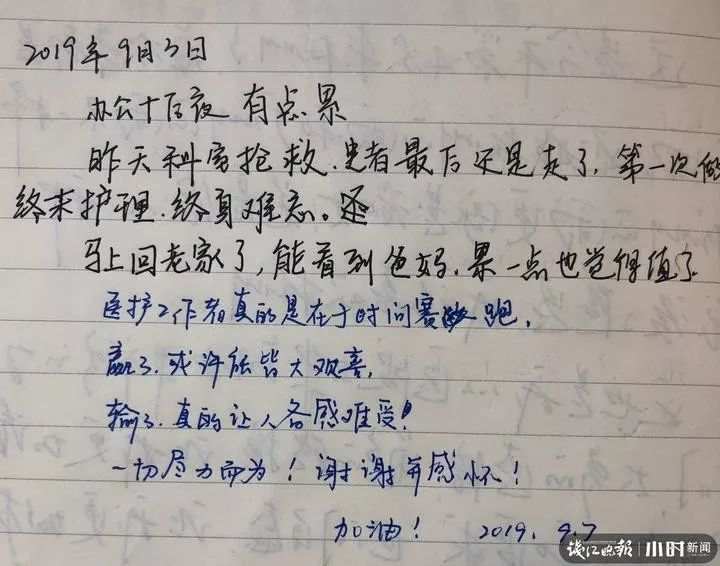 2019年9月3日
办公十后夜 有点累
昨天科室抢救.患者最后还是走了.第一次做
终末护理.终身难忘。还
马上回老家了,能看到爸妈.累一点也觉得值了
医护工作者真的是在于时间赛跑,
赢了.或许能皆大观喜,
输了.真的让人备感难受!
一切尽力而为!谢谢并感怀!
加油! 2019.9.7
钱江晚报 小时新闻